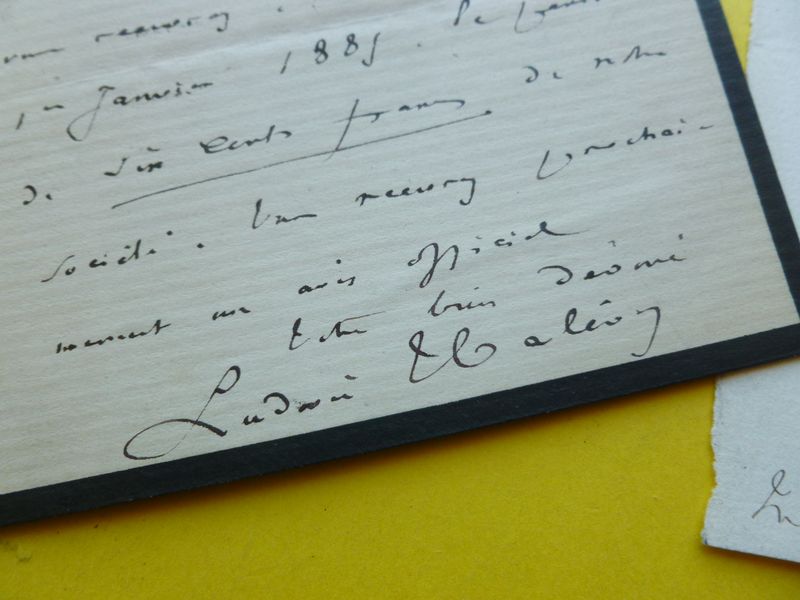 vous recevrez
1er Janvier 1885. la pension
de six cents francs de notre
société. Vous recevrez prochai-
nement un avis officiel
Votre bien dévoué
Ludovic Halévy